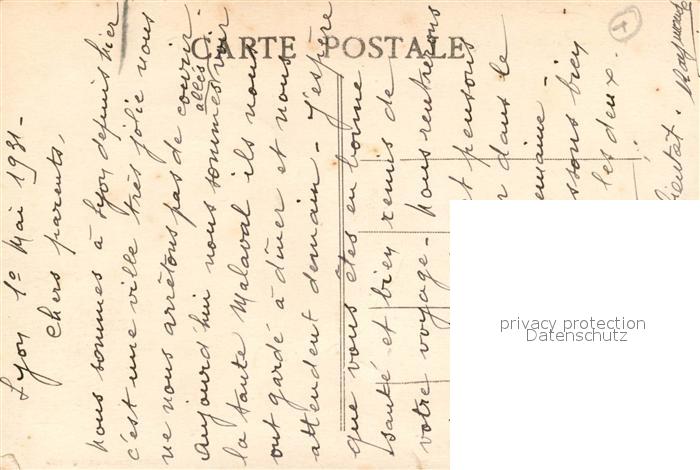 CARTE POSTALE
Lyon 1º Mai 1931-
Chers parents,
nous sommes à Lyon depuis hier
c'est une ville très jolie nous
ne nous arrêtons pas de courir-
Aujourd'hui nous sommes allés voir
la tante Malaval ils nous
ont gardé à dîner et nous
attendent demain - J'espère
que vous êtes en bonne
santé et bien remis de
votre voyage - nous rentrerons
et pensons
dans le
semaine -
bien
les deux.
bientôt. Raymond
privacy protection
Datenschutz